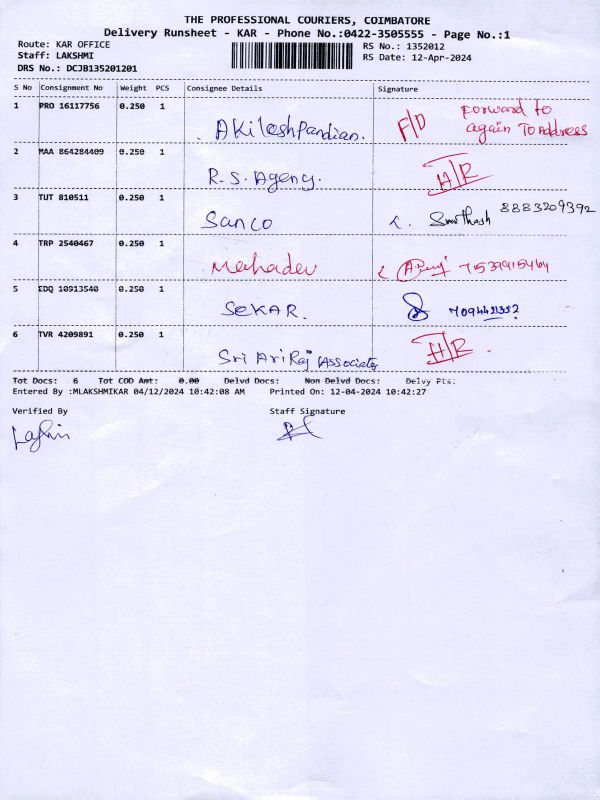 THE PROFESSIONAL COURIERS, COIMBATORE
Delivery Runsheet - KAR - Phone No.:0422-3505555 - Page No.:1
Route: KAR OFFICE
RS No.: 1352012
Staff: LAKSHMI
RS Date: 12-Apr-2024
DRS No.: DCJB135201201
S No Consignment No Weight PCS Consignee Details Signature
1 PRO 16117756 0.250 1 Akileshpandian. F/D forward to
again To address
2 MAA 864284409 0.250 1 R.S. Ageny. H/R
3 TUT 810511 0.250 1 Sanco 8883209392
4 TRP 2540467 0.250 1 Mahadev
5 EDQ 10913540 0.250 1 SEKAR.
6 TVR 4209891 0.250 1 Sri AriRaj Associates H/R
Tot Docs: 6 Tot COD Amt: 0.00 Delvd Docs: Non Delvd Docs: Delvy Pts:
Entered By :MLAKSHMIKAR 04/12/2024 10:42:08 AM Printed On: 12-04-2024 10:42:27
Verified By Staff Signature